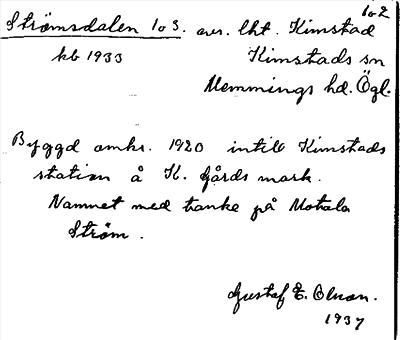 1o2
Strömsdalen 1o3. avs. lht. Kimstad
kb 1933 Kimstads sn
Memmings hd. Ögl.
Byggd omkr. 1920 intill Kimstads
station å K. gårds mark.
Namnet med tanke på Motala
Ström.
Gustaf E. Olsson.
1937